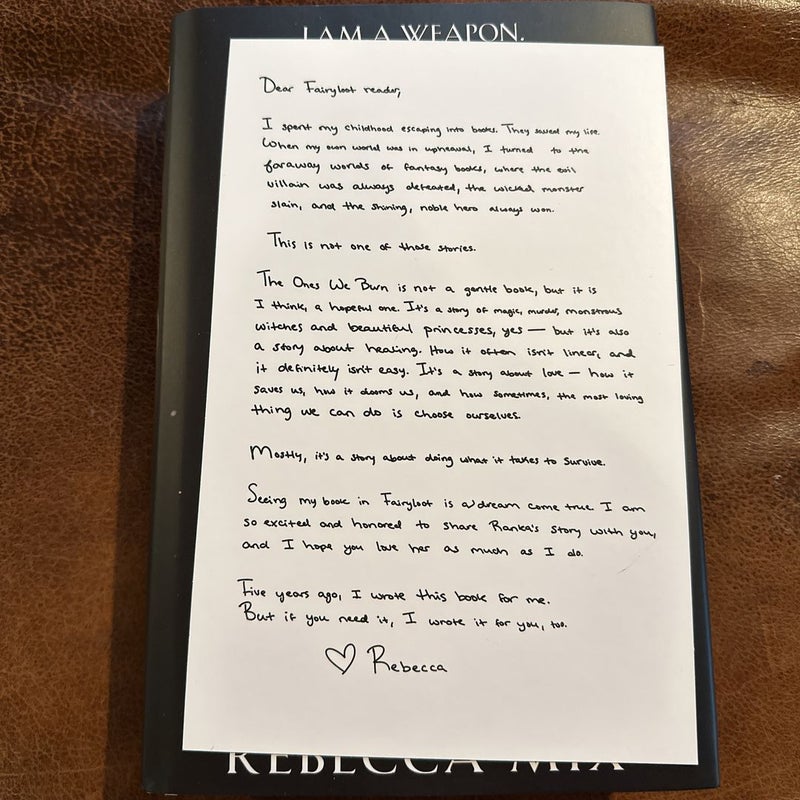 I AM A WEAPON.
Dear Fairyloot reader,
I spent my childhood escaping into books. They saved my life.
When my own world was in upheaval, I turned to the
faraway worlds of fantasy books, where the evil
villain was always defeated, the wicked monster
slain, and the shining, noble hero always won.
This is not one of those stories.
The Ones We Burn is not a gentle book, but it is
I think, a hopeful one. It's a story of magic, murder, monstrous
witches and beautiful princesses, yes — but it's also
a story about healing. How it often isn't linear, and
it definitely isn't easy. It's a story about love — how it
saves us, how it dooms us, and how sometimes, the most loving
thing we can do is choose ourselves.
Mostly, it's a story about doing what it takes to survive.
Seeing my book in Fairyloot is a dream come true. I am
so excited and honored to share Ranka's story with you,
and I hope you love her as much as I do.
Five years ago, I wrote this book for me.
But if you need it, I wrote it for you, too.
♡ Rebecca
REBECCA MIX